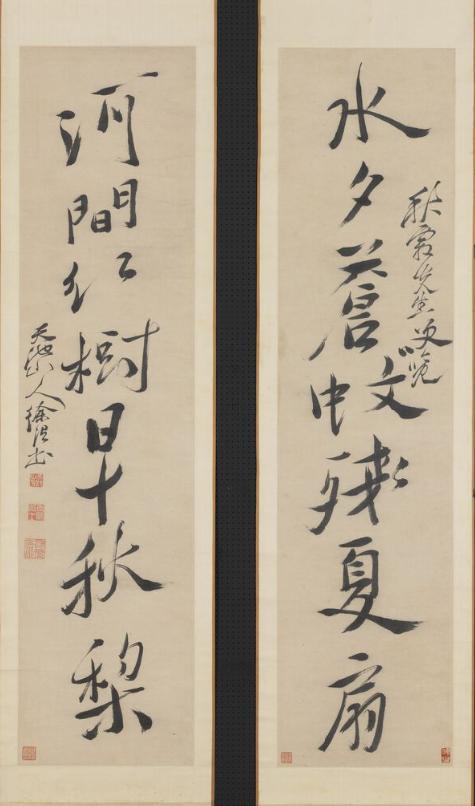 水夕蒼蚊殘夏扇
秋 先生 覽
河間紅樹早秋梨
天池山人徐渭書